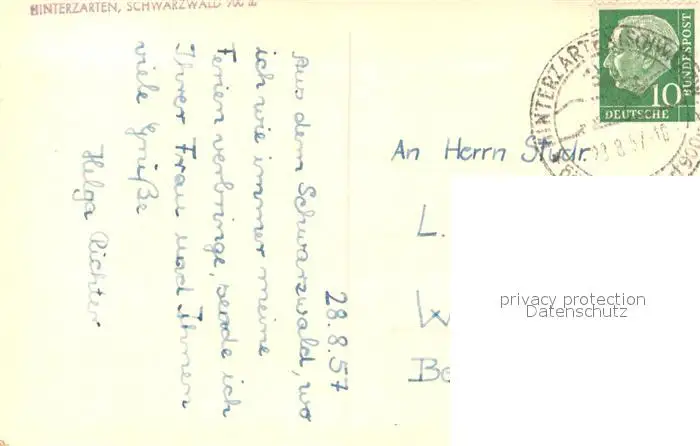 HINTERZARTEN, SCHWARZWALD 900 m
28.8.57
Aus dem Schwarzwald, wo
ich wie immer meine
Ferien verbringe, sende ich
Ihrer Frau und Ihnen
viele Grüße
Helga Richter
10
DEUTSCHE
BUNDESPOST
HINTERZARTEN
An Herrn Studr.
L.
W
Be
privacy protection
Datenschutz